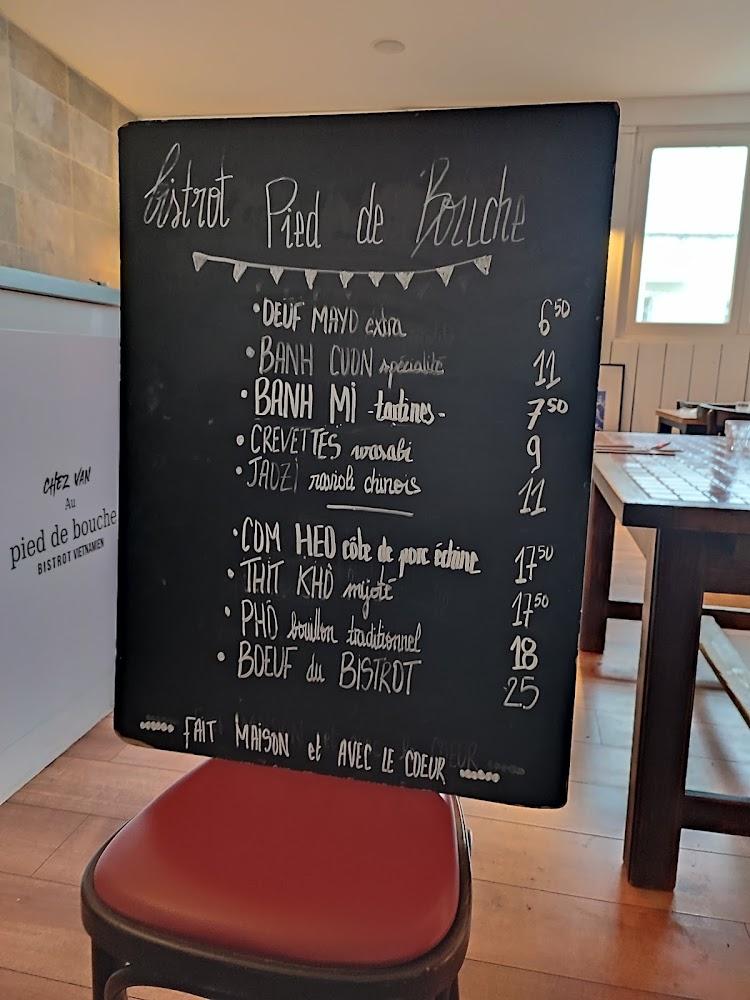 bistrot Pied de Bouche
• OEUF MAYO extra 6⁵⁰
• BANH CUON spécialité 11
• BANH MÌ -tartines- 7⁵⁰
• CREVETTES wasabi 9
• JAOZI ravioli chinois 11
• COM HEO côte de porc échine 17⁵⁰
• THIT KHÔ mijoté 17⁵⁰
• PHÔ bouillon traditionnel 18
• BOEUF du BISTROT 25
FAIT MAISON et AVEC LE COEUR
CHEZ VAN
Au
pied de bouche
BISTROT VIETNAMIEN